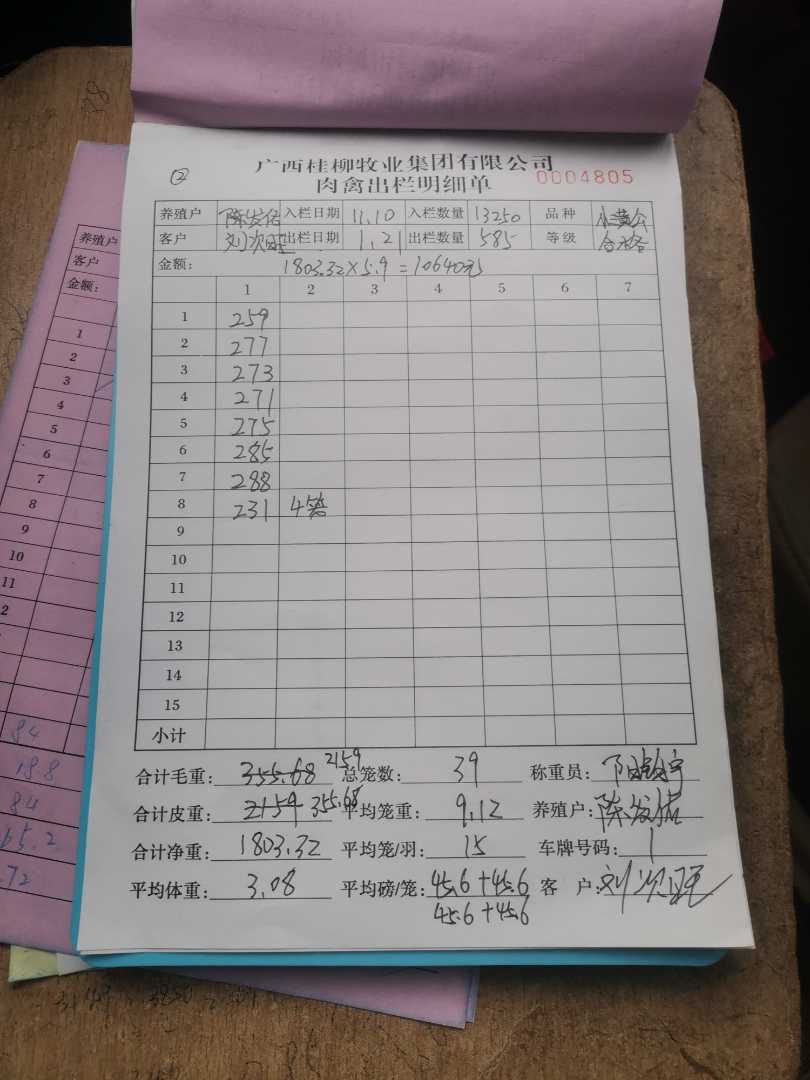 ②
广西桂柳牧业集团有限公司
肉禽出栏明细单 0004805
养殖户 陈发佑 入栏日期 11.10 入栏数量 13250 品种 小黄公
客户 刘次旺 出栏日期 1.21 出栏数量 585 等级 合格
金额: 1803.32×5.9=10640元
1 2 3 4 5 6 7
1 259
2 277
3 273
4 271
5 275
6 285
7 288
8 231 4笼
9
10
11
12
13
14
15
小计
合计毛重: 355.68 2159 总笼数: 39 称重员:
合计皮重: 2159 355.68 平均笼重: 9.12 养殖户: 陈发佑
合计净重: 1803.32 平均笼/羽: 15 车牌号码: 1
平均体重: 3.08 平均磅/笼: 45.6+45.6 客户: 刘次旺
45.6+45.6
养殖户
客户
金额:
1
2
3
4
5
6
7
8
9
10
11
2
84
188
84
65.2
72